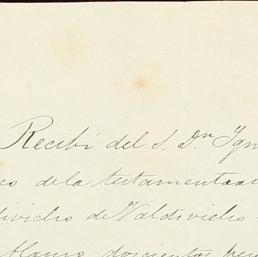 Recibí del S. Dn Ign
de la testamentaa
divielso de Valdivielso
Alamo doscientos pes